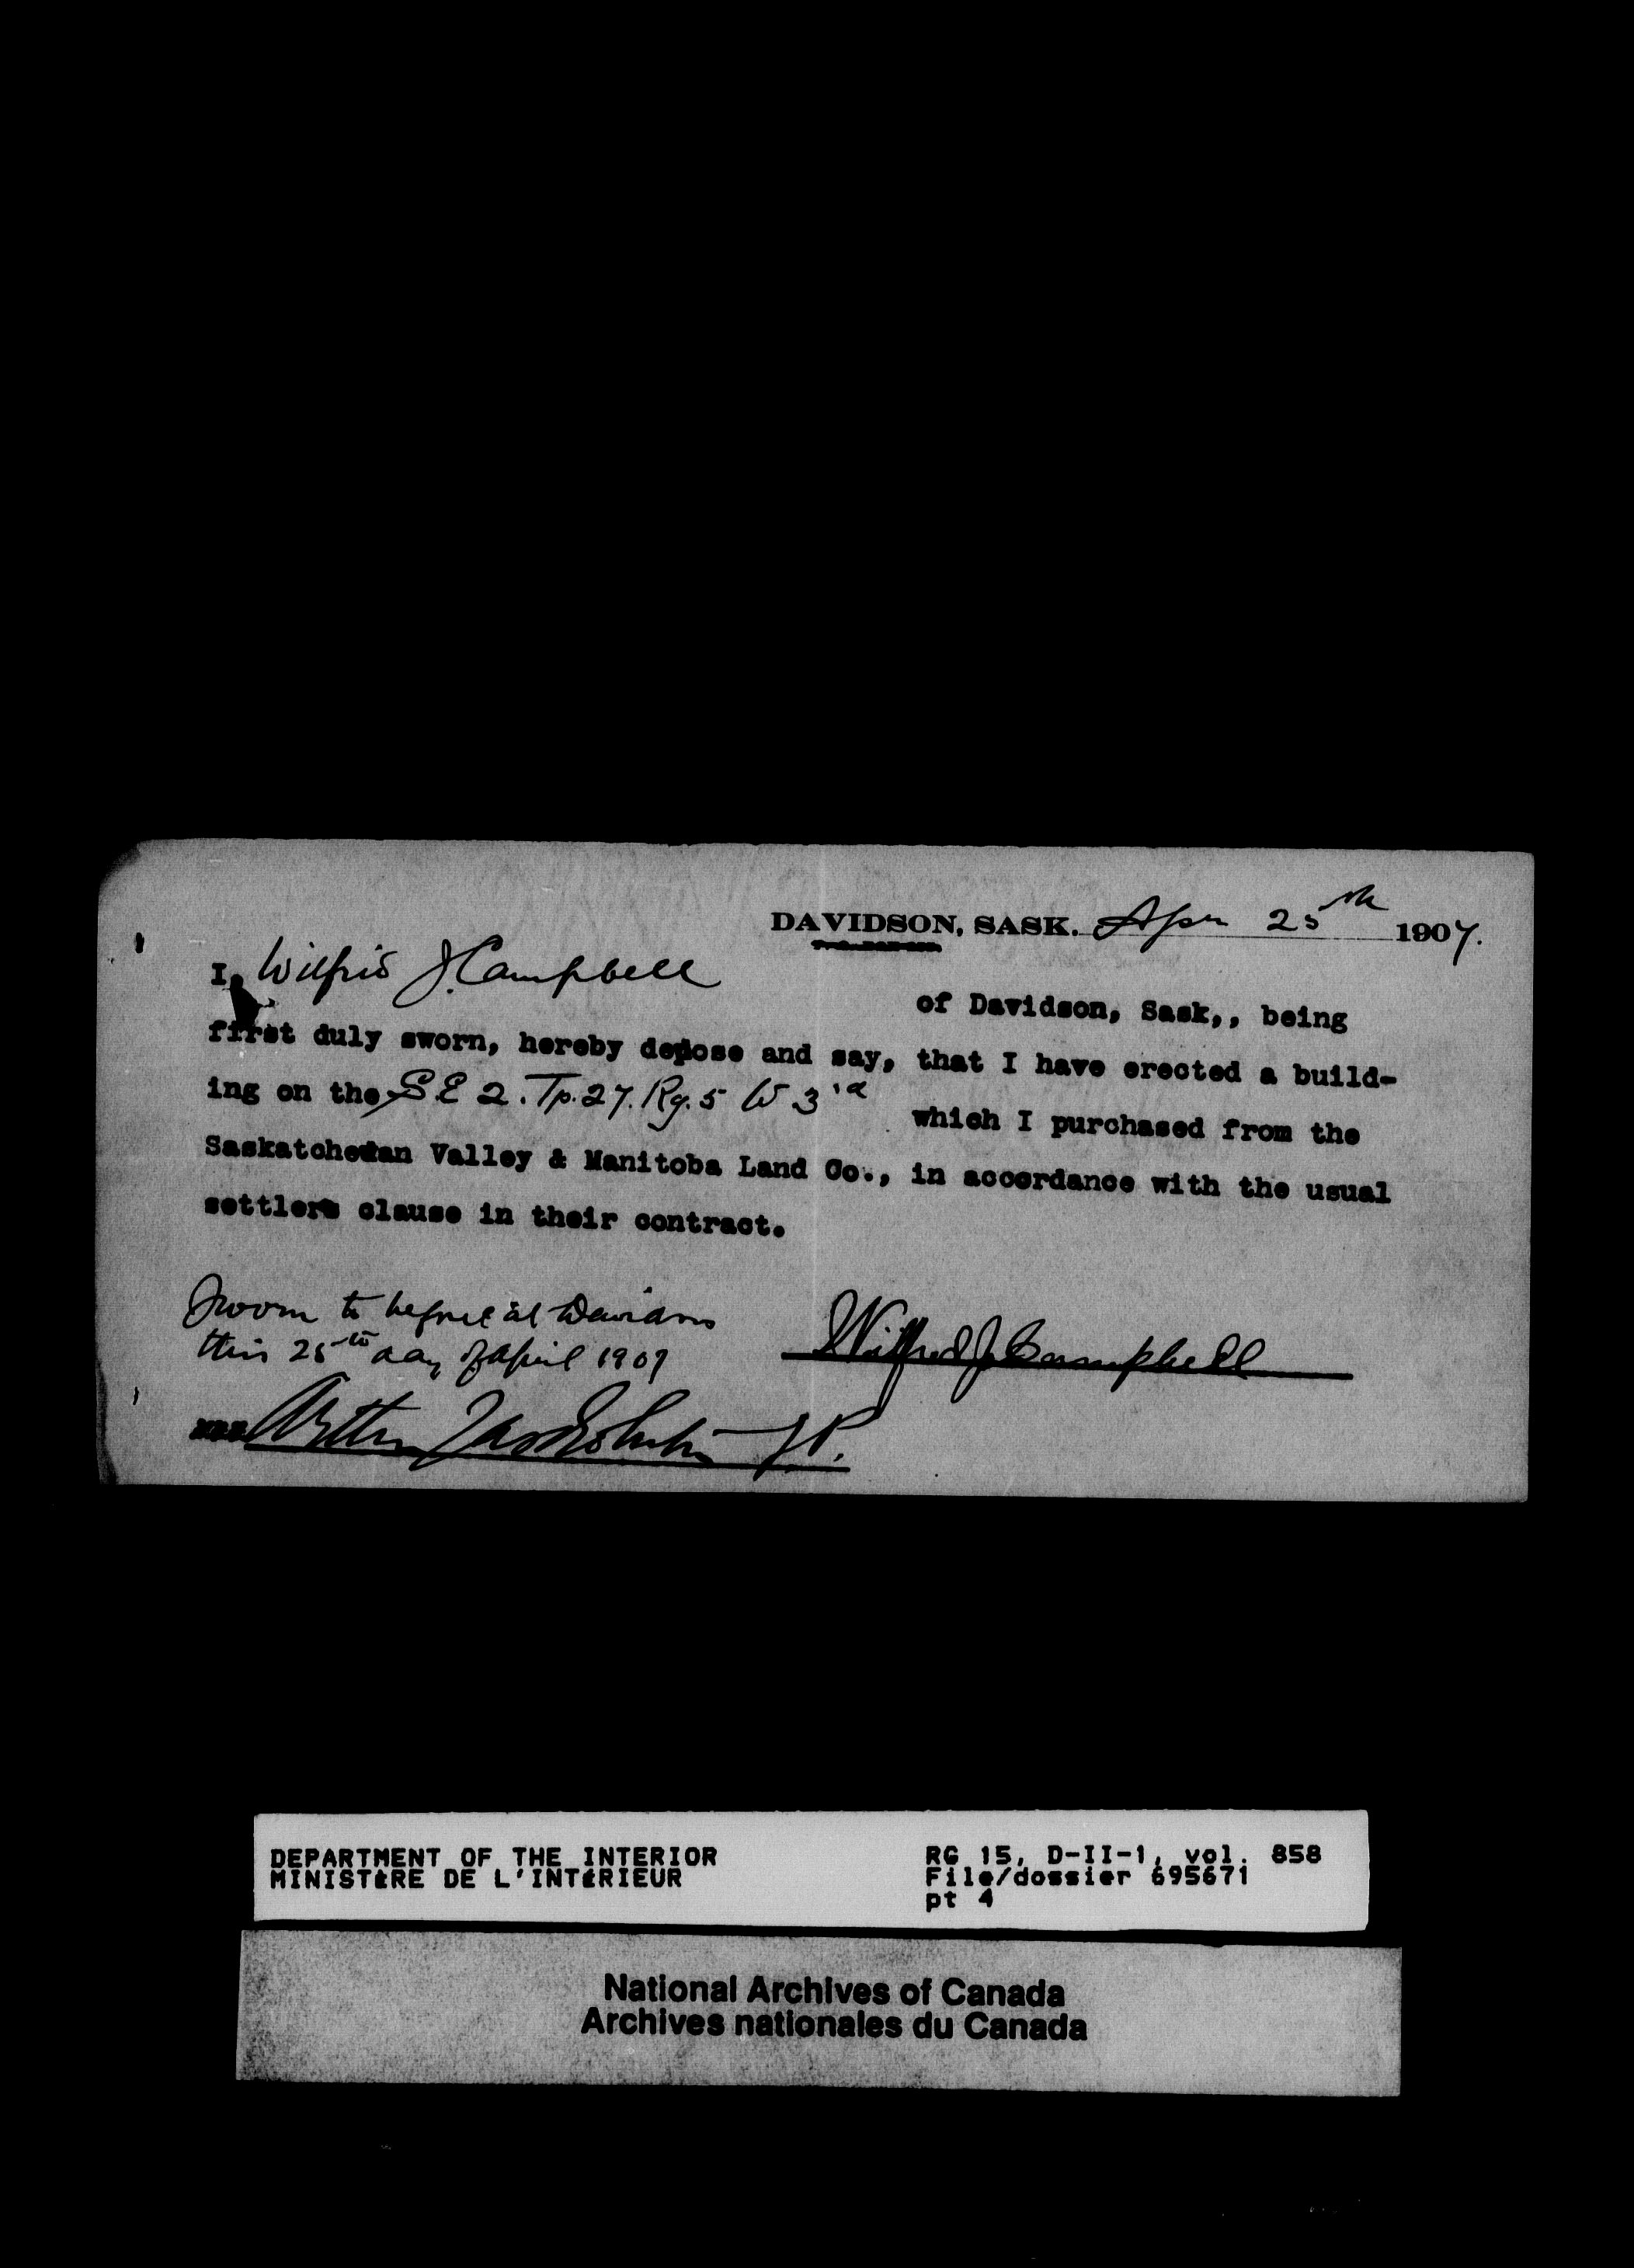 DAVIDSON, SASK. Apr 25th 1907.
I, Wilfrid J. Campbell
of Davidson, Sask,, being
first duly sworn, hereby depose and say, that I have erected a build-
ing on the S.E 2. Tp. 27. Rg. 5 W 3rd which I purchased from the
Saskatchewan Valley & Manitoba Land Co., in accordance with the usual
settlers clause in their contract.
Sworn to before at Davidson
this 25th day of April 1907
Wilfred J. Campbell
Arthur J.P.
DEPARTMENT OF THE INTERIOR
MINISTÈRE DE L'INTÉRIEUR
RG 15, D-II-1, vol. 858
File/dossier 695671
pt 4
National Archives of Canada
Archives nationales du Canada